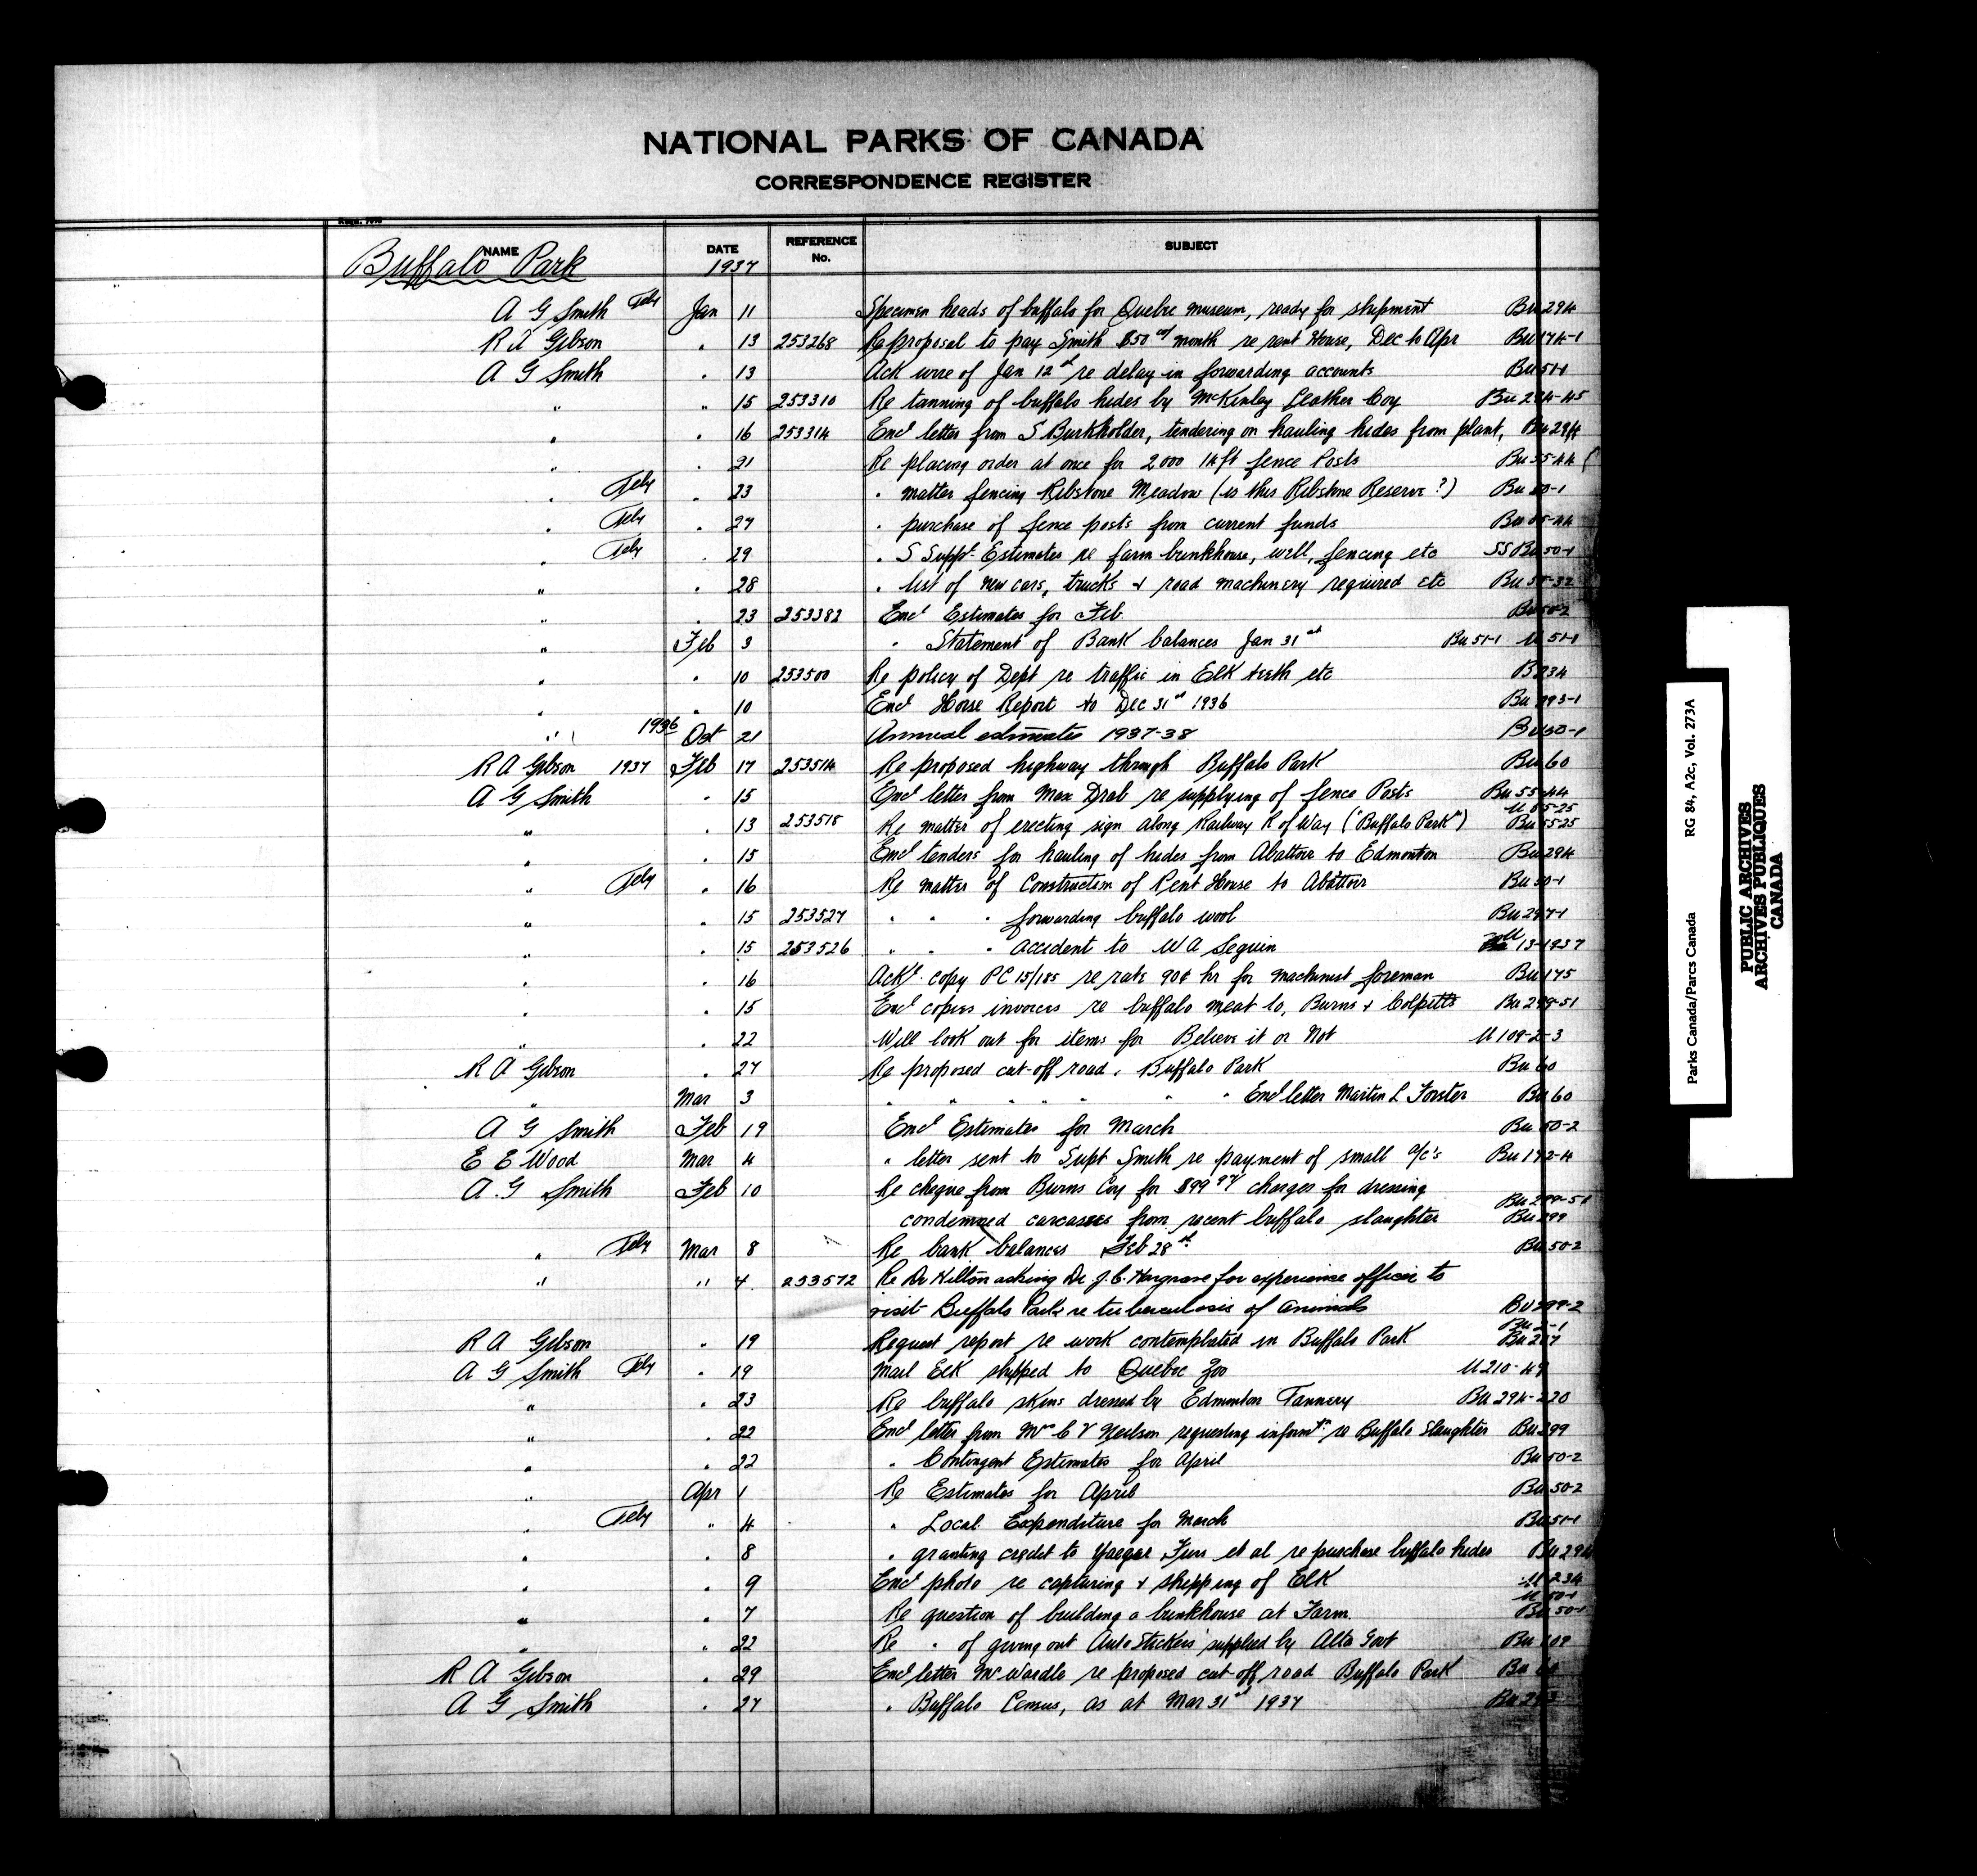 NATIONAL PARKS OF CANADA
CORRESPONDENCE REGISTER
NAME DATE REFERENCE No. SUBJECT
Buffalo Park 1937
A G Smith Tely Jan 11 Specimen heads of buffalo for Quebec museum, ready for shipment Bu 294
R A Gibson " 13 253268 Re proposal to pay Smith $50 month re rent House, Dec to Apr Bu 174-1
A G Smith " 13 Ack wire of Jan 12th re delay in forwarding accounts Bu 51-1
" " 15 253310 Re tanning of buffalo hides by McKinley Leather Coy Bu 294-45
" " 16 253314 Encl letter from S Burkholder, tendering on hauling hides from plant, Bu 294
" " 21 Re placing order at once for 2000 14 ft fence Posts Bu 55-44
" Tely " 23 " matter fencing Ribstone Meadow (is this Ribstone Reserve?) Bu 50-1
" Tely " 27 " purchase of fence posts from current funds Bu 55-44
" Tely " 29 " S Suppl. Estimates re farm bunkhouse, well, fencing etc SS Bu 50-1
" " 28 " list of new cars, trucks & road machinery required etc Bu 55-32
" " 23 253382 Encl Estimates for Feb. Bu 50-2
" Feb 3 " Statement of Bank balances Jan 31st Bu 51-1 U 51-1
" " 10 253500 Re policy of Dept re traffic in Elk teeth etc B 234
" " 10 Encl Horse Report to Dec 31st 1936 Bu 293-1
" 1936 Oct 21 Annual estimates 1937-38 Bu 50-1
R A Gibson 1937 Feb 17 253514 Re proposed highway through Buffalo Park Bu 60
A G Smith " 15 Encl letter from Max Drab re supplying of fence Posts Bu 55-44
U 55-25
" " 13 253518 Re matter of erecting sign along Railway R of Way ("Buffalo Park") Bu 55-25
" " 15 Encl tenders for hauling of hides from Abattoir to Edmonton Bu 294
" Tely " 16 Re matter of Construction of Rent House to Abattoir Bu 50-1
" " 15 253527 " " " forwarding buffalo wool Bu 297-1
" " 15 253526 " " " accident to W A Seguin U 13-1937
" " 16 Ackd. copy PC 15/185 re rate 90¢ hr for machinist foreman Bu 175
" " 15 Encl copies invoices re buffalo meat to, Burns & Colpitts Bu 299-51
" " 22 Will look out for items for Believe it or Not U 109-2-3
R A Gibson " 27 Re proposed cut-off road, Buffalo Park Bu 60
" Mar 3 " " " " " " " Encl letter Martin L Forster Bu 60
A G Smith Feb 19 Encl Estimates for March Bu 50-2
E E Wood Mar 4 " letter sent to Supt Smith re payment of small a/c's Bu 192-4
A G Smith Feb 10 Re cheque from Burns Coy for $99 charges for dressing Bu 299-51
condemned carcasses from recent buffalo slaughter Bu 299
" Tely Mar 8 Re bank balances Feb 28th Bu 50-2
" " 4 253572 Re Dr Hilton asking Dr J. C. Hargrave for experience officer to
visit Buffalo Park re tuberculosis of animals Bu 299-2
Bu 2-1
R A Gibson " 19 Request report re work contemplated in Buffalo Park Bu 217
A G Smith Tely " 19 Mail Elk shipped to Quebec Zoo U 210-49
" " 23 Re buffalo skins dressed by Edmonton Tannery Bu 294-220
" " 22 Encl letter from Mr C V Neilson requesting informtn re Buffalo Slaughter Bu 299
" " 22 " Contingent Estimates for April Bu 50-2
" Apr 1 Re Estimates for April Bu 50-2
" Tely " 4 " Local Expenditure for March Bu 51-1
" " 8 " granting credit to Yaeger Furs et al re purchase buffalo hides Bu 294
" " 9 Encl photo re capturing & shipping of Elk U 234
U 50-1
" " 7 Re question of building a bunkhouse at Farm Bu 50-1
" " 22 Re " of giving out Auto Stickers supplied by Alta Govt Bu 109
R A Gibson " 29 Encl letter Mr Wardle re proposed cut-off road Buffalo Park Bu 60
A G Smith " 27 " Buffalo Census, as at Mar 31st 1937
Parks Canada/Parcs Canada RG 84, A2c, Vol. 273A
PUBLIC ARCHIVES
ARCHIVES PUBLIQUES
CANADA